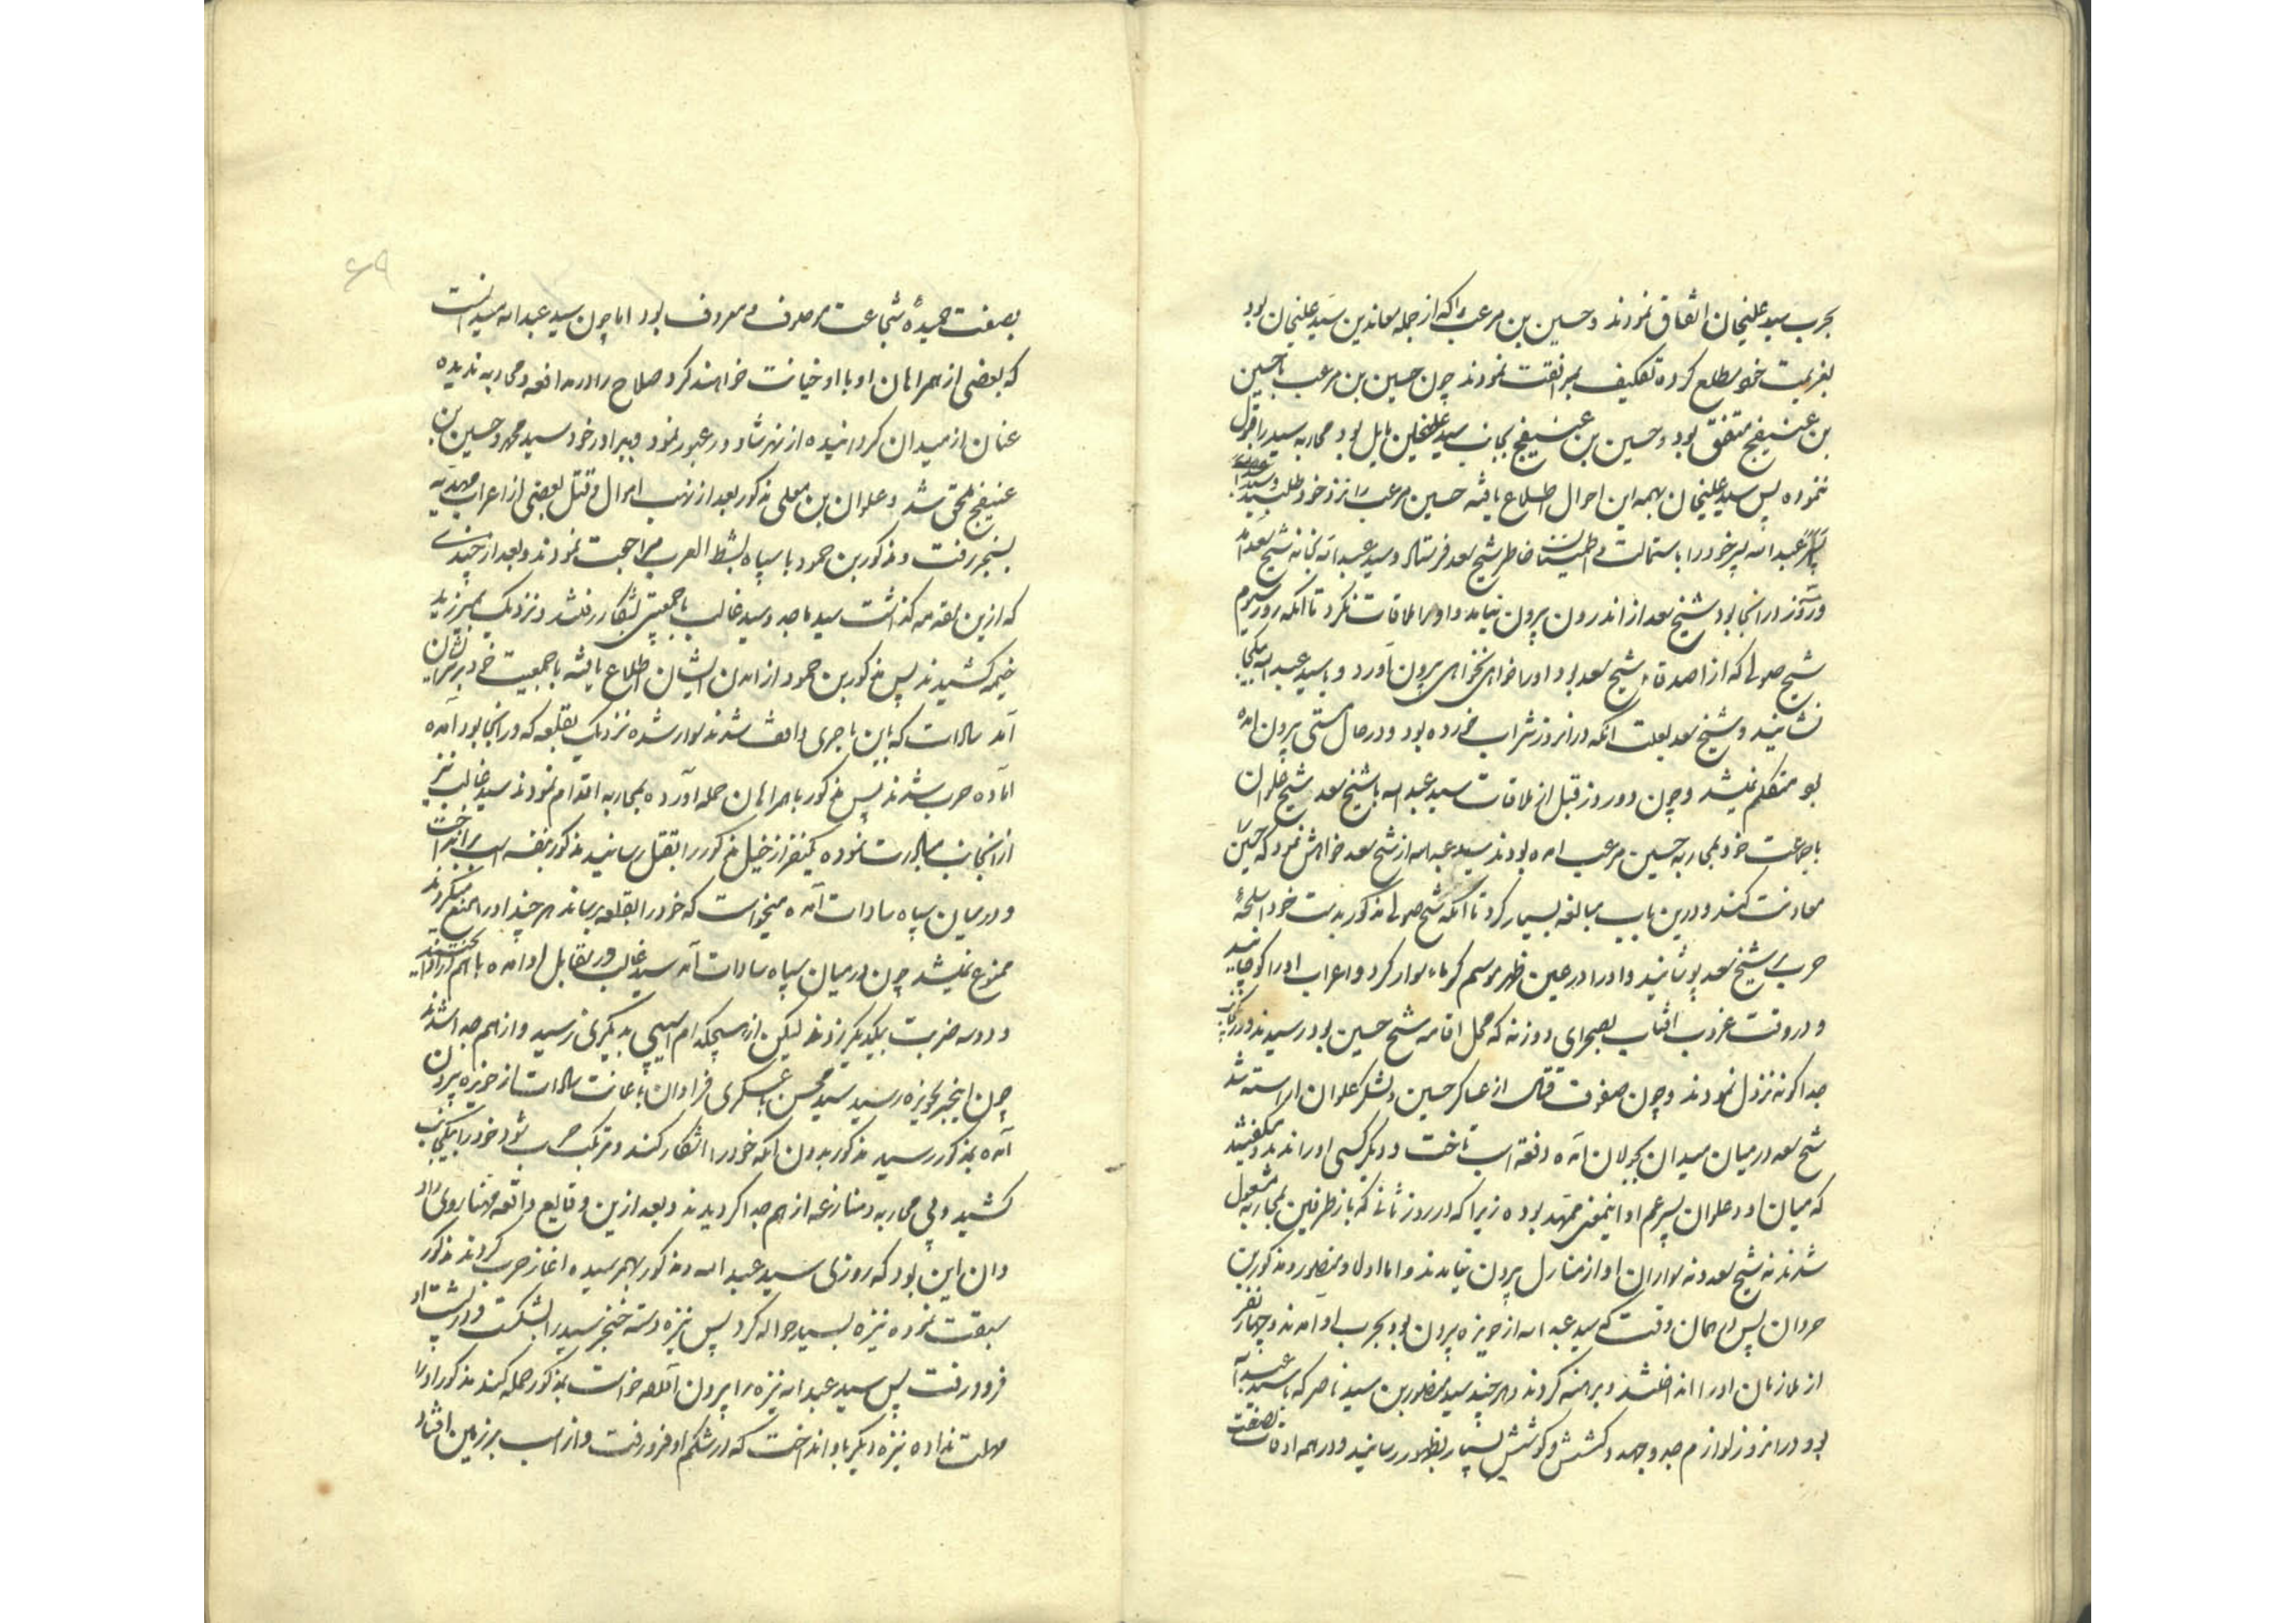 بحرب سید علیخان اتفاق نمودند و حسین بن مرعب را که از جمله معاندین سید علیخان بود
بعزیمت خود مطلع کرده تکلیف بمرافقت نمودند چون حسین بن مرعب با حسین
بن عنیفج متفق بود و حسین بن عنیفج بجانب سید علیخان مایل بود محاربه سید را قبول
ننموده پس سید علیخان بهمه این احوال اطلاع یافته حسین مرعب را نزد خود طلبید
عبدالله پسر خود را باستمالت و اطمینان خاطر شیخ سعد فرستاد و سید عبدالله بخانه شیخ سعد
دو روز در انجا بود شیخ سعد از اندرون بیرون نیامد و او را ملاقات نکرد تا آنکه روز سیوم
شیخ صولی که از اصدقاء شیخ سعد بود او را خواهی نخواهی بیرون آورد و با سید عبدالله یکجا
نشانید و شیخ سعد بعلت انکه در انروز شراب خورده بود و در حال مستی بیرون امده
بود متکلم نمیشد و چون دو روز قبل از ملاقات سید عبدالله با شیخ سعد شیخ علوان
با جماعت خود بمحاربه حسین مرعب امده بودند سید عبدالله از شیخ سعد خواهش نمود که حسین را
معاونت کند و درین باب مبالغه بسیار کرد تا آنکه شیخ صولی مذکور بدست خود اسلحهٔ
حرب بر شیخ سعد پوشانید و او را در عین ظهر موسم گرما سوار کرد و اعراب او را کوچانید
و در وقت غروب افتاب بصحرای دوزنه که محل اقامه شیخ حسین بود رسیدند و در
جداگونه نزول نمودند و چون صفوف قتال از عساکر حسین و لشکر علوان اراسته شد
شیخ سعد در میان میدان بجولان آمده دفعهٔ اسب تاخت و دیگر کسی او را ندید و میگفتند
که میان او و علوان پسر عم او اینمعنی ممهد بوده زیرا که در روز ثانی که باز طرفین بمحاربه مشغول
شدند نه شیخ سعد و نه سواران او از منازل بیرون نیامدند و اما اولاد منصور و مذکور بن
حروان پس در همان وقت که سید عبدالله از حویزه بیرون بود بحرب او امدند و چهار نفر
از ملازمان او را انداختند و برهنه کردند و هر چند سید منصور بن سید ناصر که با سید عبدالله
بود در انروز لوازم جد و جهد و کشش و کوشش بسیار بظهور رسانید و در همه اوقات بصفت
۶۹
بصفت حمیدهٔ شجاعت موصوف و معروف بود اما چون سید عبدالله میدانست
که بعضی از همراهان او با او خیانت خواهند کرد صلاح را در مدافعه و محاربه ندیده
عنان از میدان گردانیده از نهر شاوور عبور نمود و ببرادر خود سید محمد و حسین بن
عنیفج ملحق شد و علوان بن معلی مذکور بعد از نهب اموال و قتل بعضی از اعراب
بسنجر رفت و مذکور بن حمود با سپاه بشط العرب مراجعت نمودند و بعد از چندی
که ازین مقدمه گذشت سید ماجد و سید غالب با جمعیتی بشکار رفتند و نزدیک
خیمه کشیدند پس مذکور بن حمود از امدن ایشان اطلاع یافته با جمعیت خود بر سر ایشان
آمد سادات که باین ماجری واقف شدند سوار شده نزدیک بقلعه که در انجا بود آمده
اماده حرب شدند پس مذکور با همراهان حمله آورده بمحاربه اقدام نمودند سید غالب نیز
از انجانب مبادرت نموده یکنفر از خیل مذکور را بقتل رسانید مذکور بنفسه اسب برانداخت
و در میان سپاه سادات آمده میخواست که خود را بقلعه برساند هر چند او را منع میکردند
ممنوع نمیشد چون در میان سپاه سادات آمد سید غالب در مقابل او امده با هم
و دو سه ضربت بیکدیگر زدند لیکن از هیچکدام آسیبی بدیگری نرسید و از هم جدا شدند
چون اینخبر بحویزه رسید سید محسن با عسکری فراوان باعانت سادات از حویزه بیرون
آمده بمذکور رسید مذکور بدون انکه خود را اشکار کند و مرتکب حرب شود خود را بیکجانب
کشید و بی محاربه و منازعه از هم جدا گردیدند و بعد ازین وقایع واقعه مهنا روی داد
و ان این بود که روزی سید عبدالله و مذکور بهم رسیده اغاز حرب کردند مذکور
سبقت نموده نیزه بسید حواله کرد پس نیزه دسته خنجر سید را بشکست و در پشت او
فرو رفت پس سید عبدالله نیزه را بیرون خواست بمذکور حمله کند مذکور او را
مهلت نداده نیزه دیگر باو انداخت که در شکم او فرو رفت و از اسب بر زمین افتاد